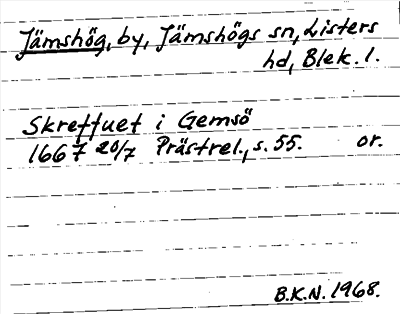 Jämshög, by, Jämshögs sn, Listers
hd, Blek. l.
Skreffuet i Gemsö
1667 20/7 Prästrel., s. 55. or.
B.K.N. 1968.